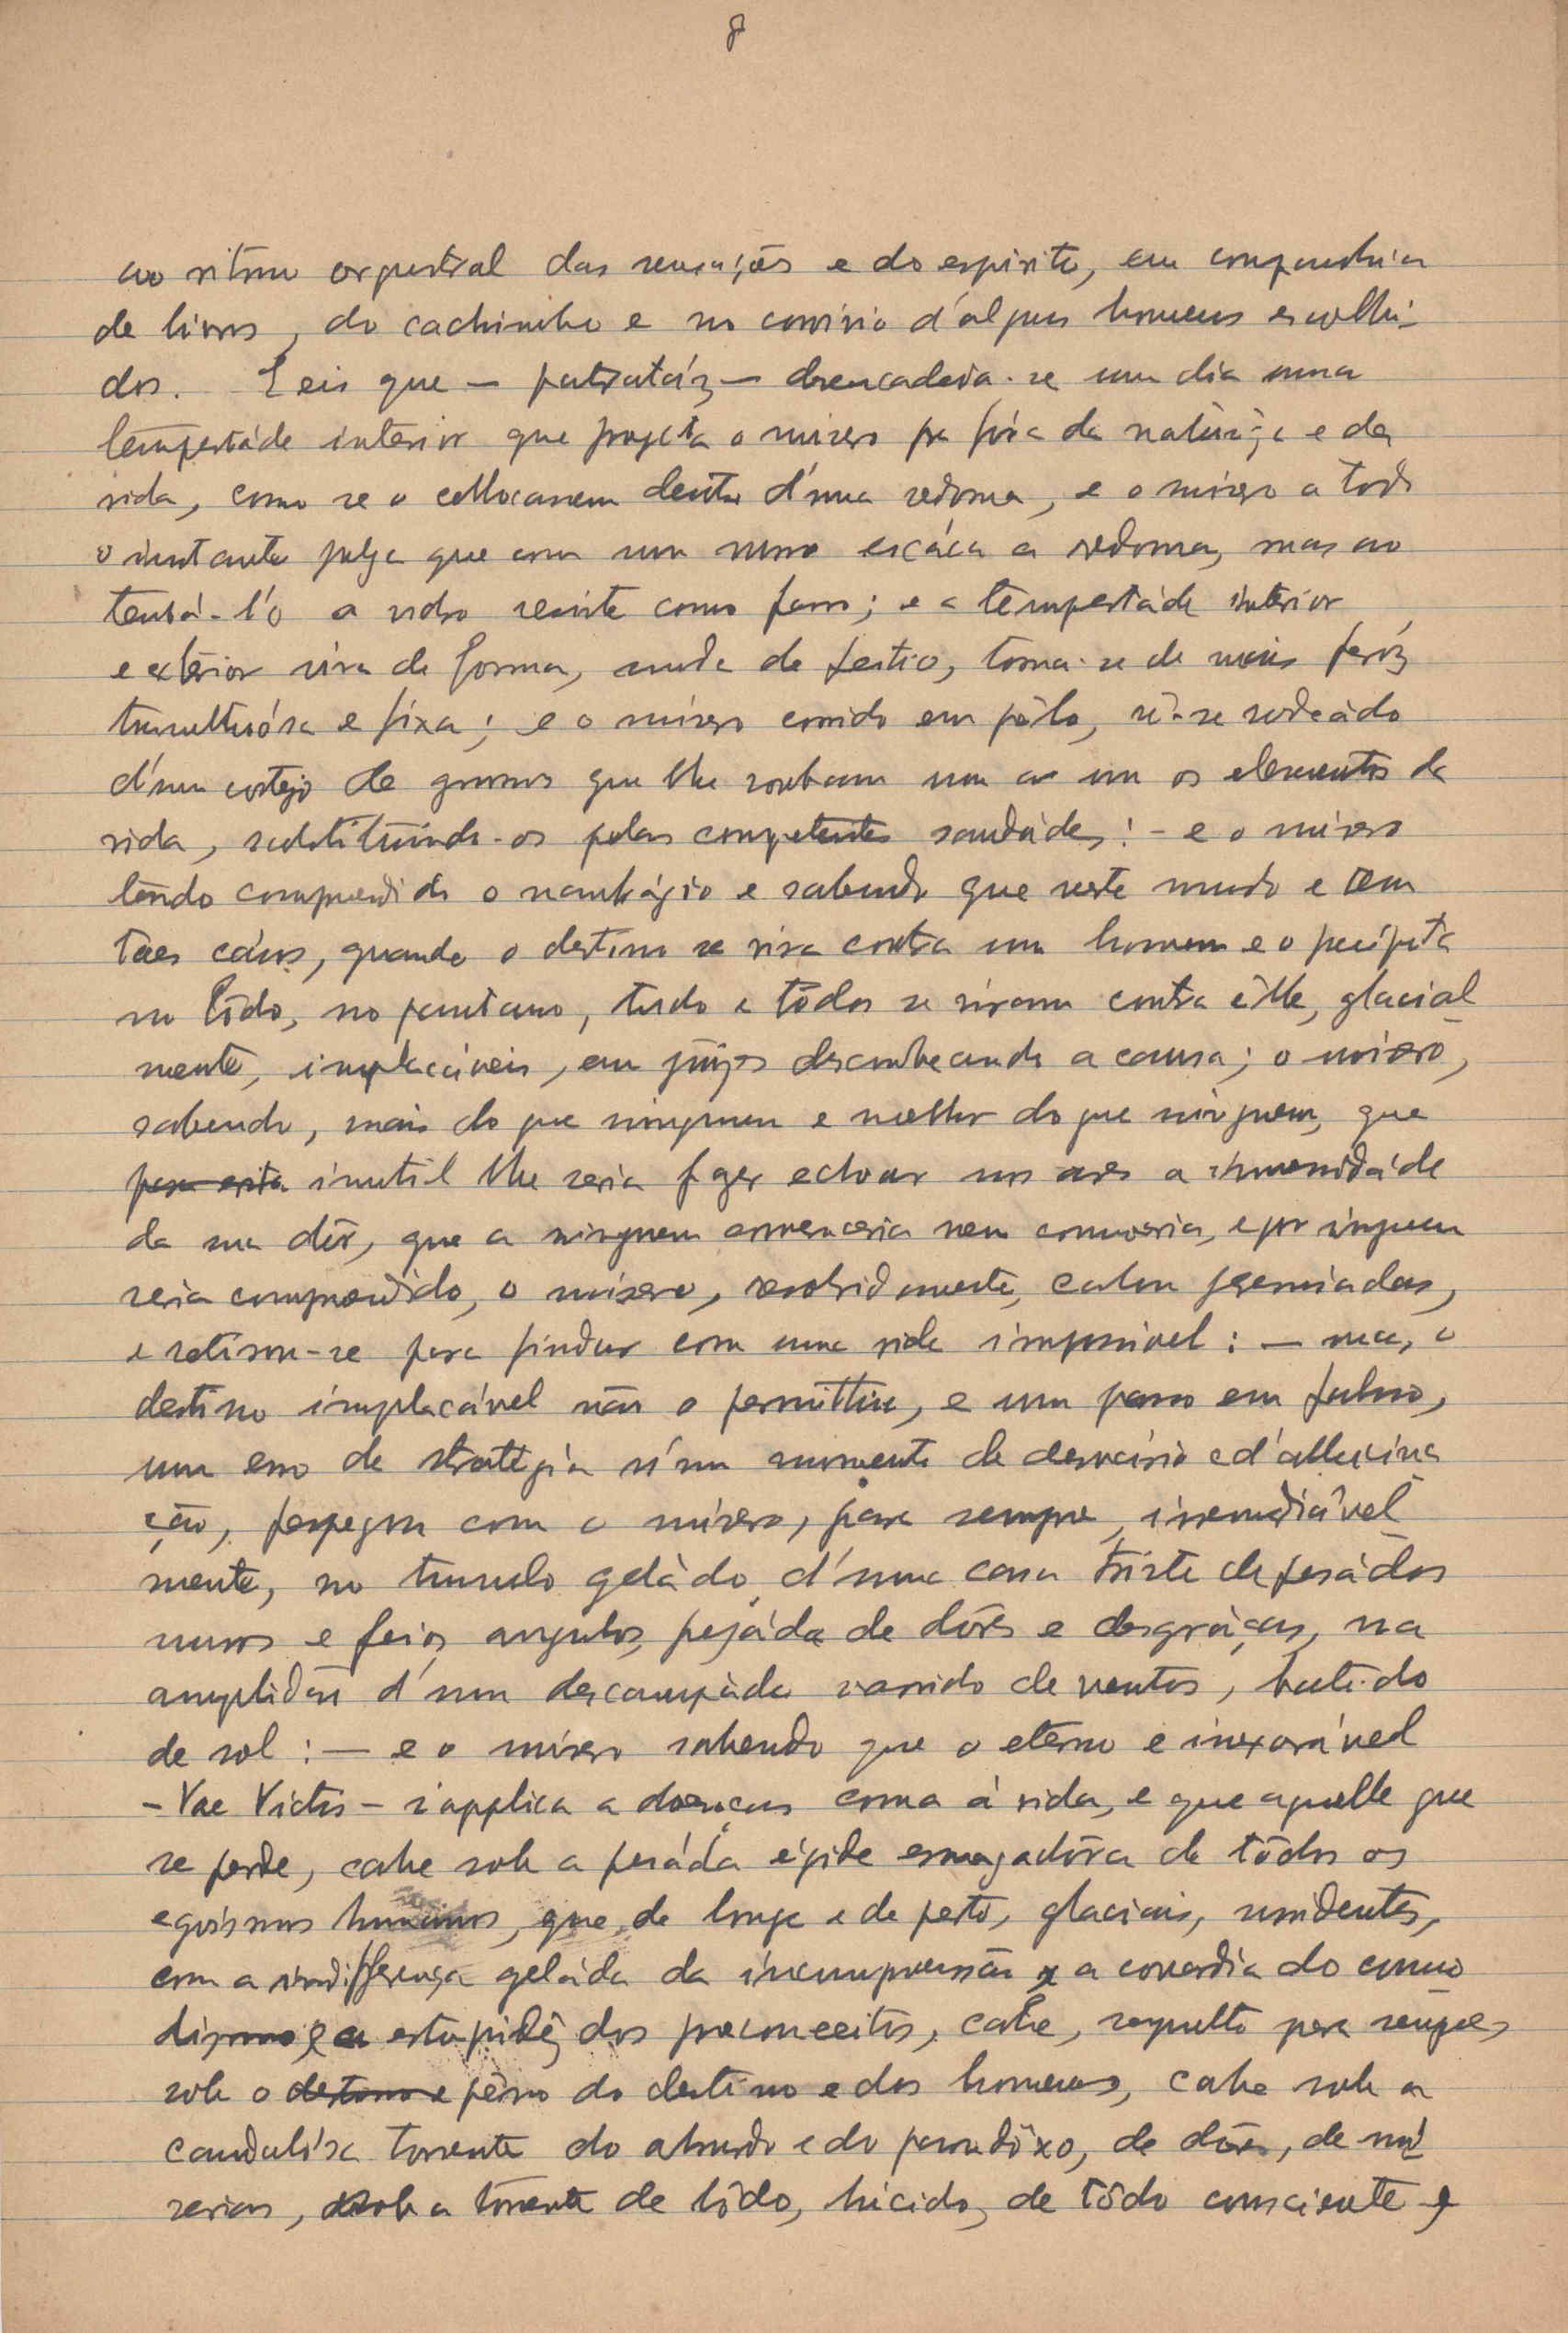 8
ao ritmo orquestral das sensações e do espirito, em companhia
de livros, do cachimbo e no convivio d'alguns homens escolhi-
dos. E eis que — patratáz — desencadeia-se um dia uma
tempestáde interior que projecta o misero pra fóra da naturêza e da
vida, como se o collocassem dentro d'uma redoma, e o misero a todo
o instante julga que com um murro escáca a redoma, mas ao
tentá-l'o o vidro resiste como ferro; e a tempestáde interior
e exterior vira de forma, muda de feitio, torna-se de mais feróz
tumultuósa e fixa; e o misero corrido em pêlo, vê-se rodeàdo
d'um cortejo de gnomos que lhe roubam um a um os elementos da
vida, substituindo-os pelas competentes saudádes! - e o misero
tendo comprendido o naufrágio e sabendo que neste mundo e em
táes cásos, quando o destino se vira contra um homem e o precipita
no lôdo, no pantano, tudo e tôdos se viram contra êlle, glacial-
mente, implacáveis, em juizos desconhecendo a causa; o misero,
sabendo, mais do que ninguem e melhor do que ninguem, que
inutil lhe seria fazer echoar nos ares a immensidáde
da sua dôr, que a ninguem convenceria nem comoveria, e por ninguem
seria comprendido, o misero, resolvidamente, calou
e retirou-se para findar com uma vida impossivel: — mas, o
destino implacável não o permittiu, e um passo em falso,
um erro de strategia n'um momento de desvairio e d'allucina
ção, pespegou com o misero, para sempre, irremediável-
mente, no tumulo gelàdo d'uma casa triste de pesàdos
muros e feios angulos, pejáda de dôres e desgráças, na
amplidão d'um descampàdo varrido de ventos, batido
de sol: — e o misero sabendo que o eterno e inexorável
- Vae Victis - s'applica a doenças como á vida, e que aquelle que
se perde, cahe sob a pesáda égide esmagadôra de tôdos os
egoismos humanos, que, de longe e de perto, glaciais, ,
com a indifferença geláda da incompreensão a covardia do como
dismo, e a estupidêz dos preconceitos, cahe, sepulto para sempre,
sob o pêso do destino e dos homens, cahe sob a
caudalósa torrente do absurdo e do paradôxo, de dôres, de mi
serias, sob a torrente de lôdo, lúcido, de tôdo consciente e